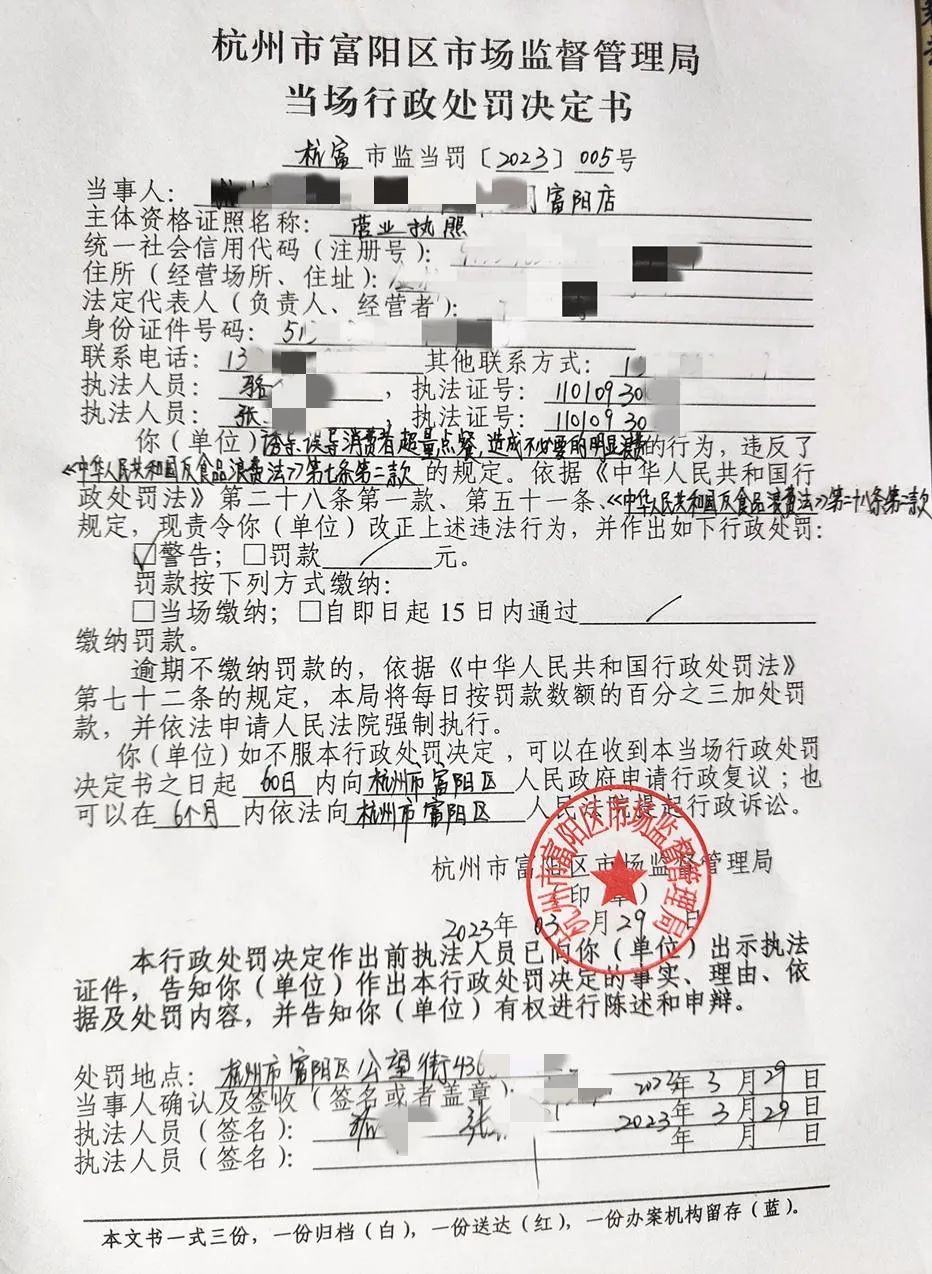 杭州市富阳区市场监督管理局
当场行政处罚决定书
杭富市监当罚〔2023〕005号
当事人： 富阳店
主体资格证照名称：营业执照
统一社会信用代码（注册号）：
住所（经营场所、住址）：
法定代表人（负责人、经营者）：
身份证件号码：51
联系电话：13 其他联系方式：1
执法人员：骆 ，执法证号：11010930
执法人员：张 ，执法证号：11010930
你（单位）诱导、误导消费者超量点餐，造成不必要的明显浪费的行为，违反了
《中华人民共和国反食品浪费法》第七条第二款的规定。依据《中华人民共和国行
政处罚法》第二十八条第一款、第五十一条、《中华人民共和国反食品浪费法》第二十八条第二款
规定，现责令你（单位）改正上述违法行为，并作出如下行政处罚：
☑警告；□罚款 元。
罚款按下列方式缴纳：
□当场缴纳；□自即日起15日内通过
缴纳罚款。
逾期不缴纳罚款的，依据《中华人民共和国行政处罚法》
第七十二条的规定，本局将每日按罚款数额的百分之三加处罚
款，并依法申请人民法院强制执行。
你（单位）如不服本行政处罚决定，可以在收到本当场行政处罚
决定书之日起60日内向杭州市富阳区人民政府申请行政复议；也
可以在6个月内依法向杭州市富阳区人民法院提起行政诉讼。
杭州市富阳区市场监督管理局
（印章）
2023年03月29日
杭州市富阳区市场监督管理局
本行政处罚决定作出前执法人员已向你（单位）出示执法
证件，告知你（单位）作出本行政处罚决定的事实、理由、依
据及处罚内容，并告知你（单位）有权进行陈述和申辩。
处罚地点：杭州市富阳区公望街436
当事人确认及签收（签名或者盖章）： 2023年3月29日
执法人员（签名）： 张 2023年3月29日
执法人员（签名）： 年 月 日
本文书一式三份，一份归档（白），一份送达（红），一份办案机构留存（蓝）。